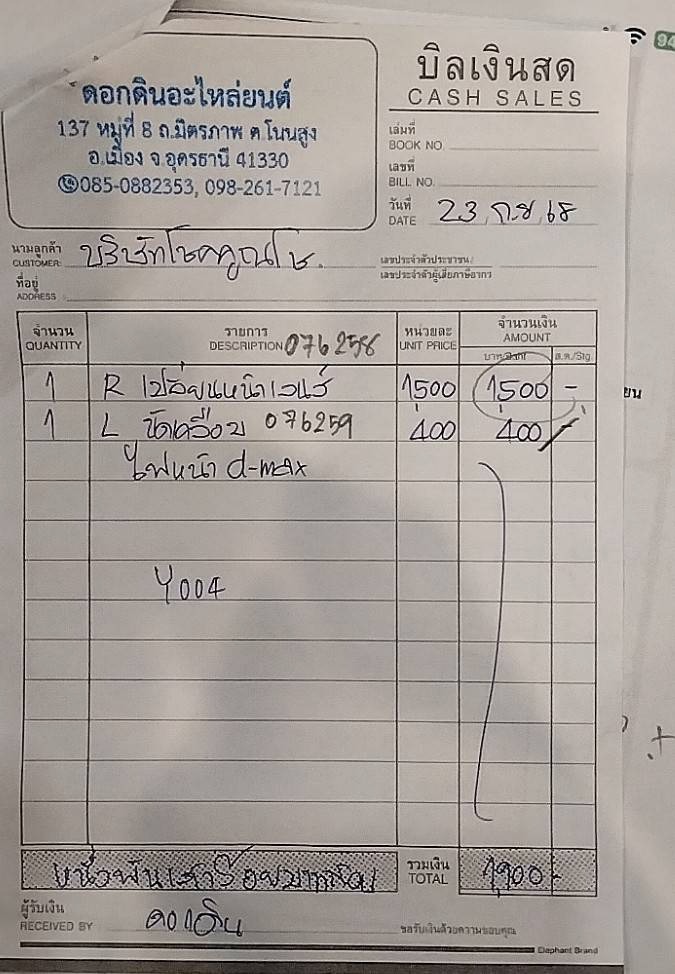 ดอกดินอะไหล่ยนต์
137 หมู่ที่ 8 ถ.มิตรภาพ ต.โนนสูง
อ.เมือง จ.อุดรธานี 41330
085-0882353, 098-261-7121
บิลเงินสด
CASH SALES
เล่มที่
BOOK NO.
เลขที่
BILL NO.
วันที่
DATE 23 ก.ย 68
นามลูกค้า
CUSTOMER บริษัทโชคคูณโช.
เลขประจำตัวประชาชน/
เลขประจำตัวผู้เสียภาษีอากร
ที่อยู่
ADDRESS
จำนวน รายการ หน่วยละ จำนวนเงิน
QUANTITY DESCRIPTION 076258 UNIT PRICE AMOUNT
บาท/Baht ส.ต./Stg.
1 R เปลี่ยนหน้าเลนส์ 1500 1500 -
1 L ขัดเคลือบ 076259 400 400 -
ไฟหน้า d-max
Y004
หนึ่งพันเก้าร้อยบาทถ้วน รวมเงิน
TOTAL 1900 -
ผู้รับเงิน
RECEIVED BY ดอกดิน
ขอรับเงินด้วยความขอบคุณ
Elephant Brand
94